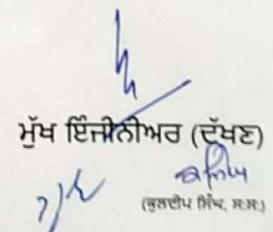 ਮੁੱਖ ਇੰਜੀਨੀਅਰ (ਦੱਖਣ)
(ਕੁਲਦੀਪ ਸਿੰਘ, ਸ:ਸ:)